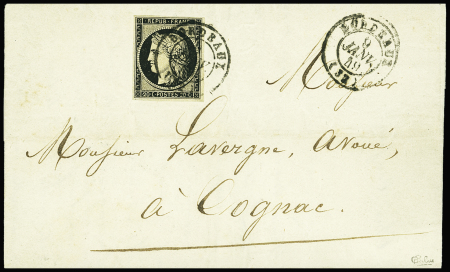 REPUB. FRANC.
BORDEAUX
20 C. POSTES 20 C.
BORDEAUX
9
JANV.
49
(32)
Monsieur
Monsieur Lavergne, avoué,
à Cognac.